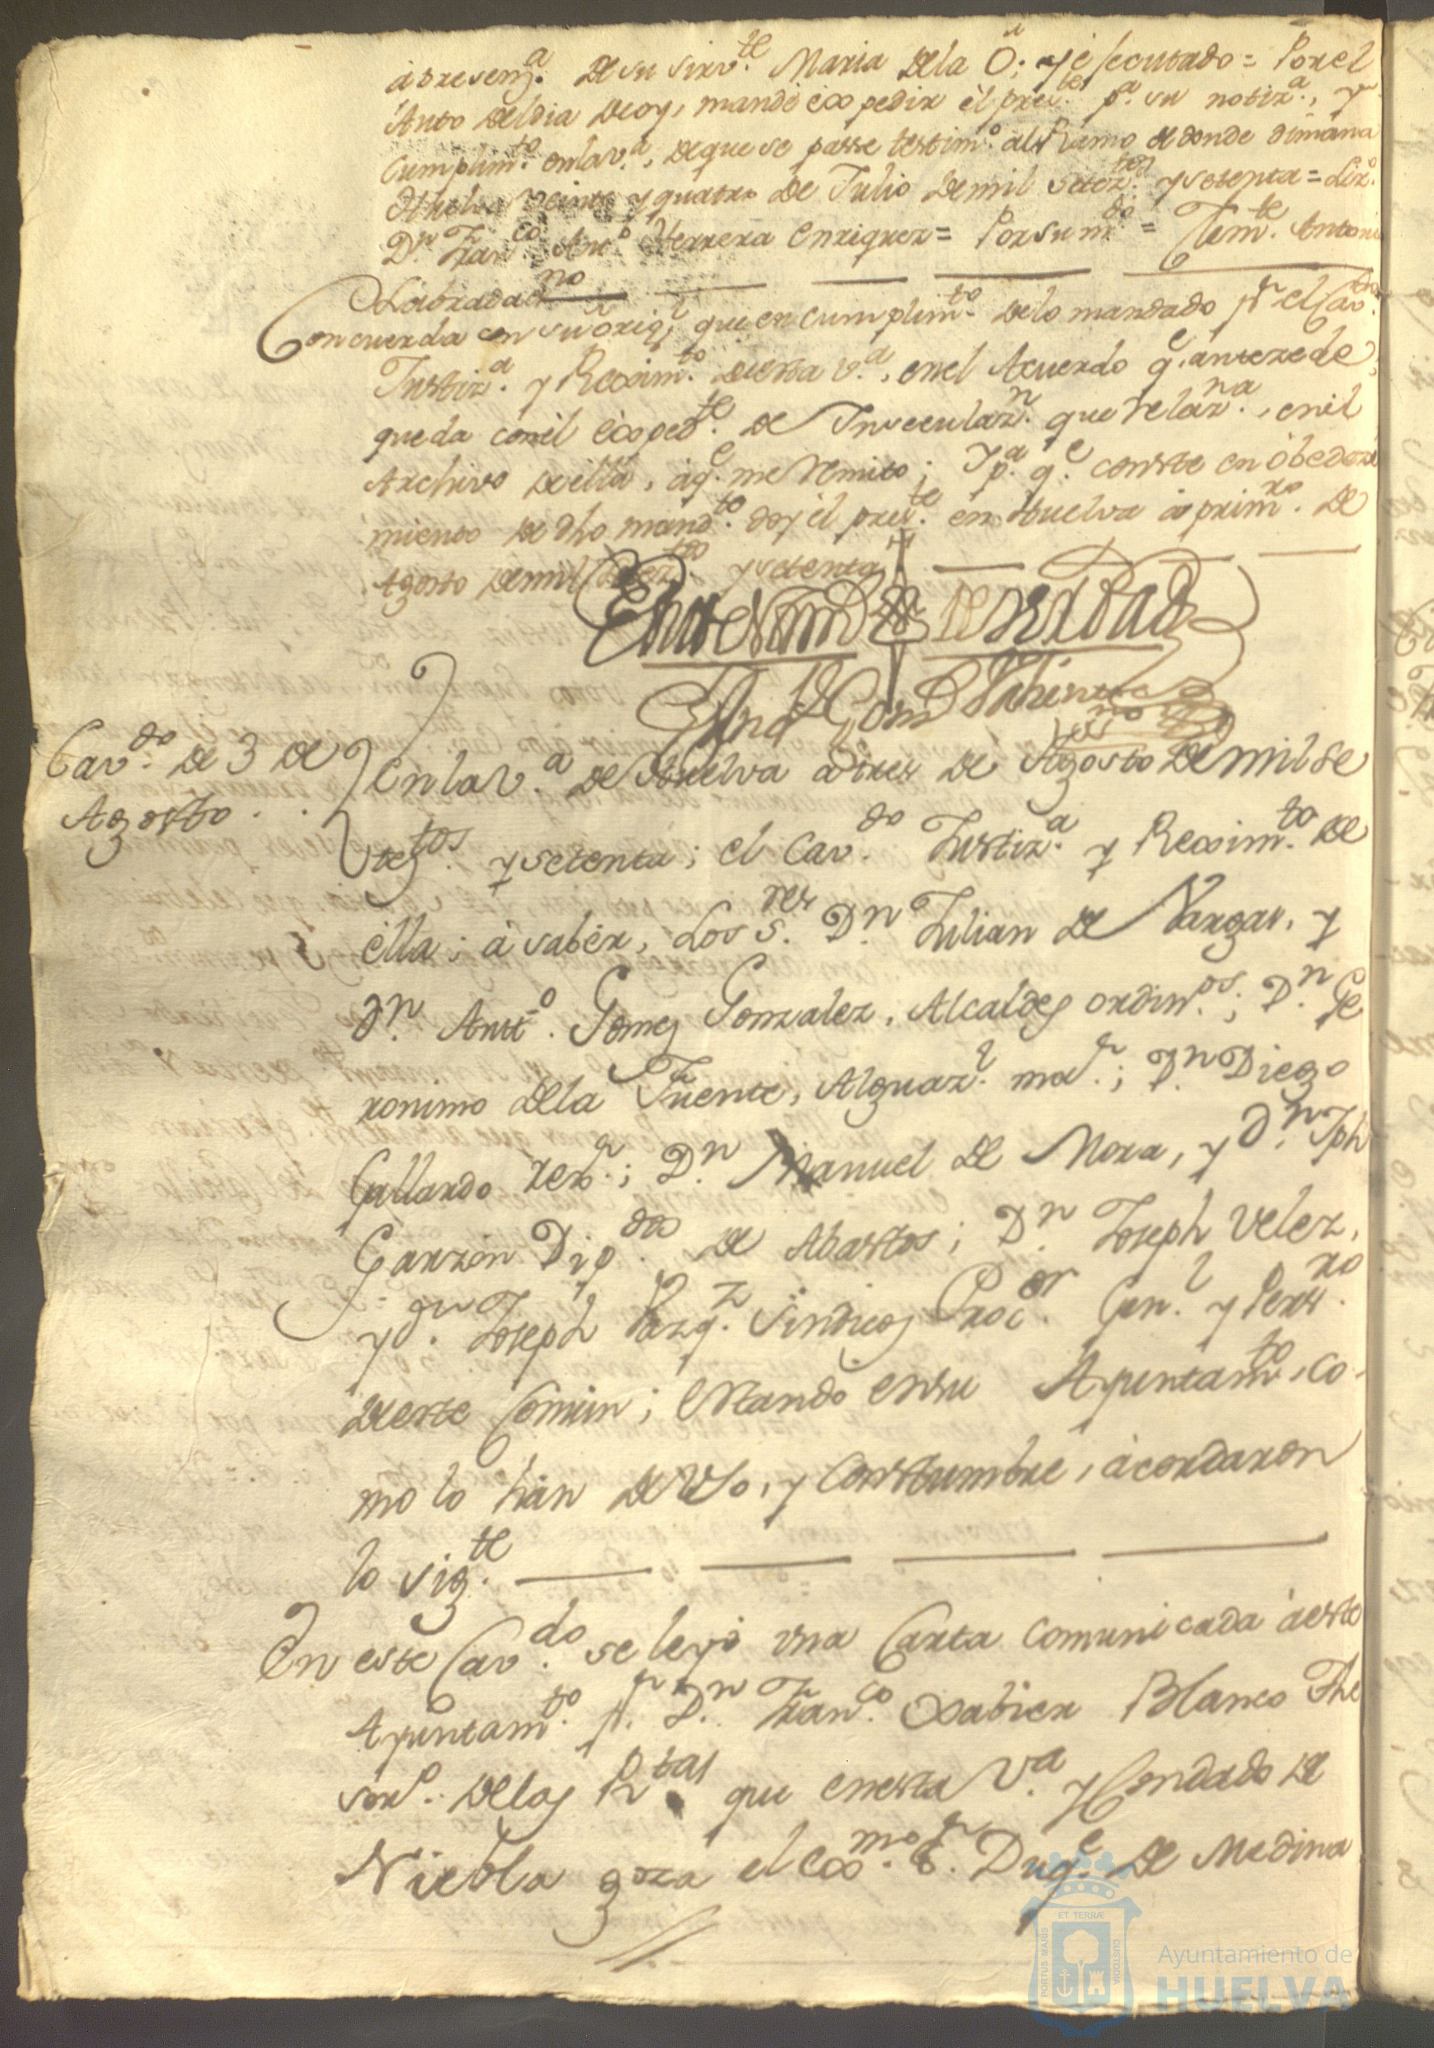 apresenz.ª de su sirv.te Maria dela O; y é secutado = Por el
Auto del dia de oy, mandé expedir el pres.te p.ª su notiz.ª, y
Cumplim.to en la v.ª, de que se passe testim.º al Ramo de donde dimana
Huelva veinte y quatro de Julio de mil setez.tos y setenta = Liz.do
D.n Fran.co Ant.º Herrera Enriquez = Por su m.do = Antoni
Labrada
Concuerda con su orig.l que en cumplim.to delo mandado p.r el Cav.do
Justiz.ª y Rexim.to de esta v.ª, en el Acuerdo q.e anterede,
queda con el exped.te de Inseculaz.n que relaz.na, en el
Archivo de ella, aq.e me remito; Y p.ª q.e conste en óbedezi
miento de dho mand.to doy el pres.te en Huelva à prim.ro de
Agosto de mil setez.tos y setenta
En testim.º de verdad
Cav.do de 3 de
Agosto
En la v.ª de Huelva a tres de Agosto de mil se
tez.tos y setenta; el Cav.do Justiz.ª y Rexim.to de
élla; à sabér, Los S.res D.n Julian de Vargas, y
D.n Antt.º Gomez Gonzalez, Alcaldes ordin.os; D.n Ge
ronimo dela Fuente, Alguaz.l ma.r; D.n Diego
Gallardo rex.r; D.n Manuel de Mora, y D.n Jph
Garzón Dip.dos de Abastos; D.n Joseph Velez,
y D.n Joseph Vazq.z Sindicos Proc.or Gen.l y Pers.ro
de este Comun; Estando en su Ayuntam.to, co-
mo lo hán de Uso, y Constumbre, àcordaron
lo sig.te
En este Cav.do se leyó una Carta comunicada à este
Ayuntam.to p.r D.n Fran.co Xabier Blanco The
sor.º delas R.tas que en esta V.ª y Condado de
Niebla goza el Exc.mo S.r Duq.e de Medina
PORTUS MARIS
ET TERRÆ
CUSTODIA
Ayuntamiento de
HUELVA